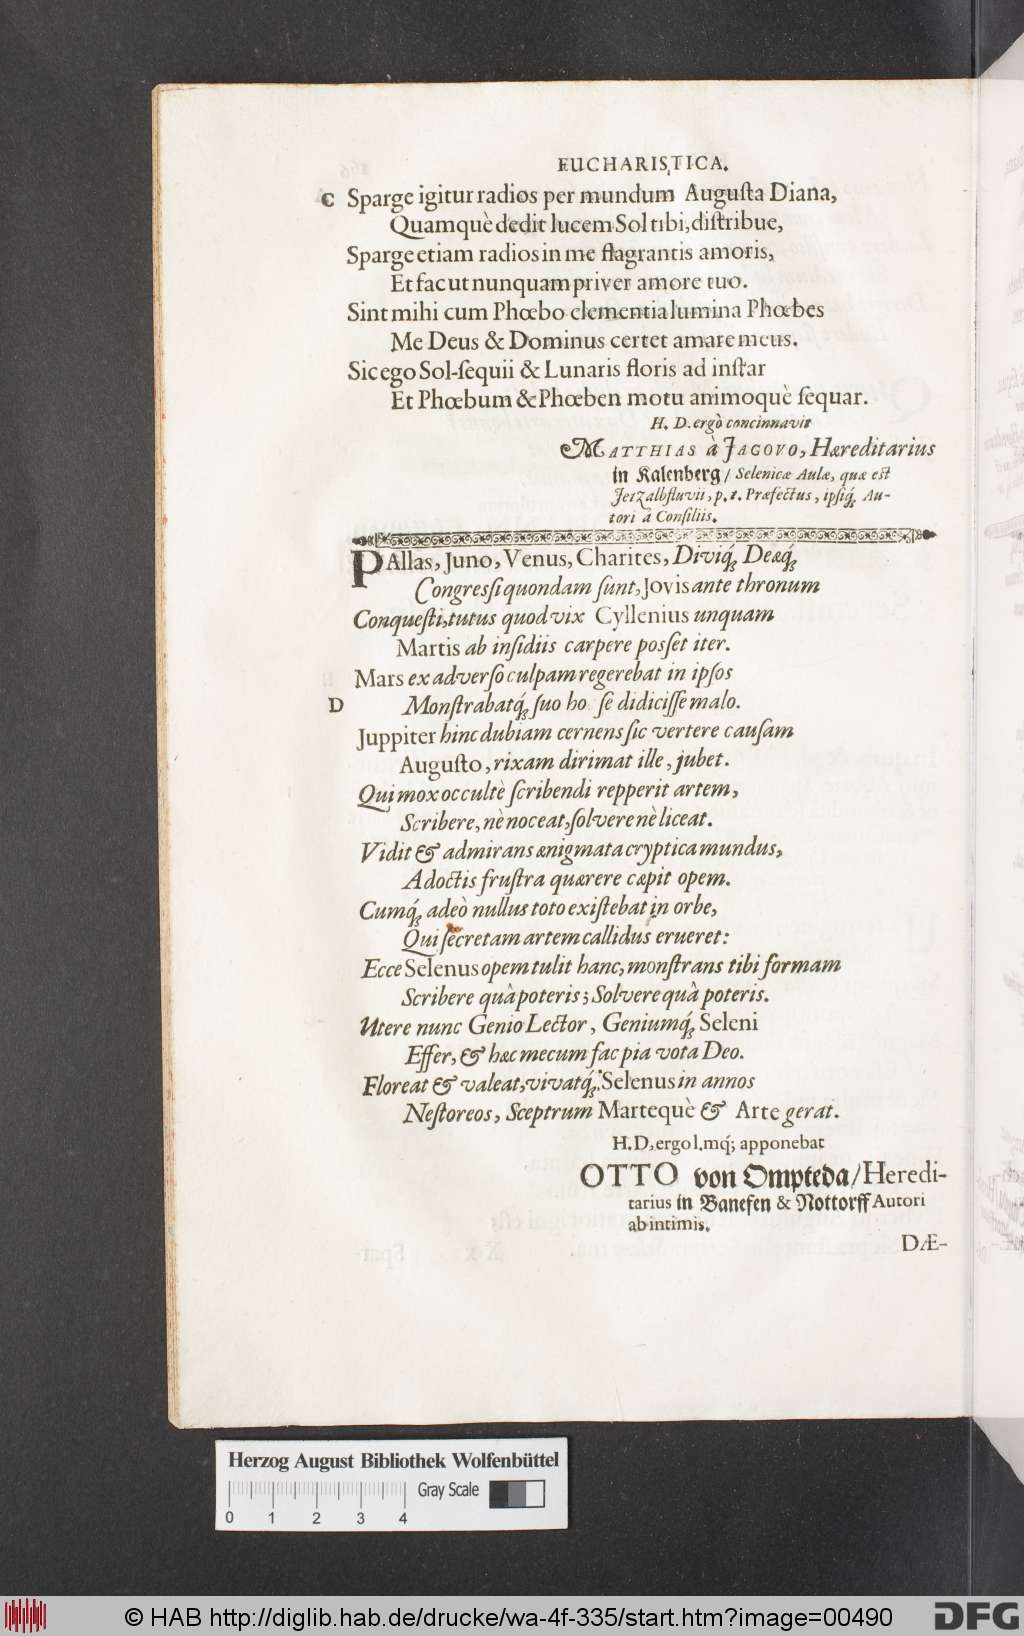 EUCHARISTICA.
C Sparge igitur radios per mundum Augusta Diana,
Quamquè dedit lucem Sol tibi, distribue,
Sparge etiam radios in me flagrantis amoris,
Et fac ut nunquam priver amore tuo.
Sint mihi cum Phœbo clementia lumina Phœbes
Me Deus & Dominus certet amare meus.
Sic ego Sol-sequii & Lunaris floris ad instar
Et Phœbum & Phœben motu animoquè sequar.
H. D. ergò concinnavit
MATTHIAS à JAGOVO, Hæreditarius
in Kalenberg / Selenicæ Aulæ, quæ est
Jetzalbfluvii, p. t. Præfectus, ipsiq́; Au-
tori à Consiliis.
PAllas, Juno, Venus, Charites, Diviq́; Deæq́;
Congressi quondam sunt, Jovis ante thronum
Conquesti, tutus quod vix Cyllenius unquam
Martis ab insidiis carpere posset iter.
Mars ex adverso culpam regerebat in ipsos
D Monstrabatq́; suo ho se didicisse malo.
Juppiter hinc dubiam cernens sic vertere causam
Augusto, rixam dirimat ille, jubet.
Qui mox occultè scribendi repperit artem,
Scribere, nè noceat, solvere nè liceat.
Vidit & admirans ænigmata cryptica mundus,
A doctis frustra quærere cæpit opem.
Cumq́; adeò nullus toto existebat in orbe,
Qui secretam artem callidus erueret:
Ecce Selenus opem tulit hanc, monstrans tibi formam
Scribere quà poteris; Solvere quà poteris.
Utere nunc Genio Lector, Geniumq́; Seleni
Effer, & hæc mecum fac pia vota Deo.
Floreat & valeat, vivatq́; Selenus in annos
Nestoreos, Sceptrum Martequè & Arte gerat.
H. D. ergo l. mq́; apponebat
OTTO von Ompteda / Heredi-
tarius in Banefen & Nottorff Autori
ab intimis.
DÆ-
Herzog August Bibliothek Wolfenbüttel
Gray Scale
0 1 2 3 4
© HAB http://diglib.hab.de/drucke/wa-4f-335/start.htm?image=00490
DFG